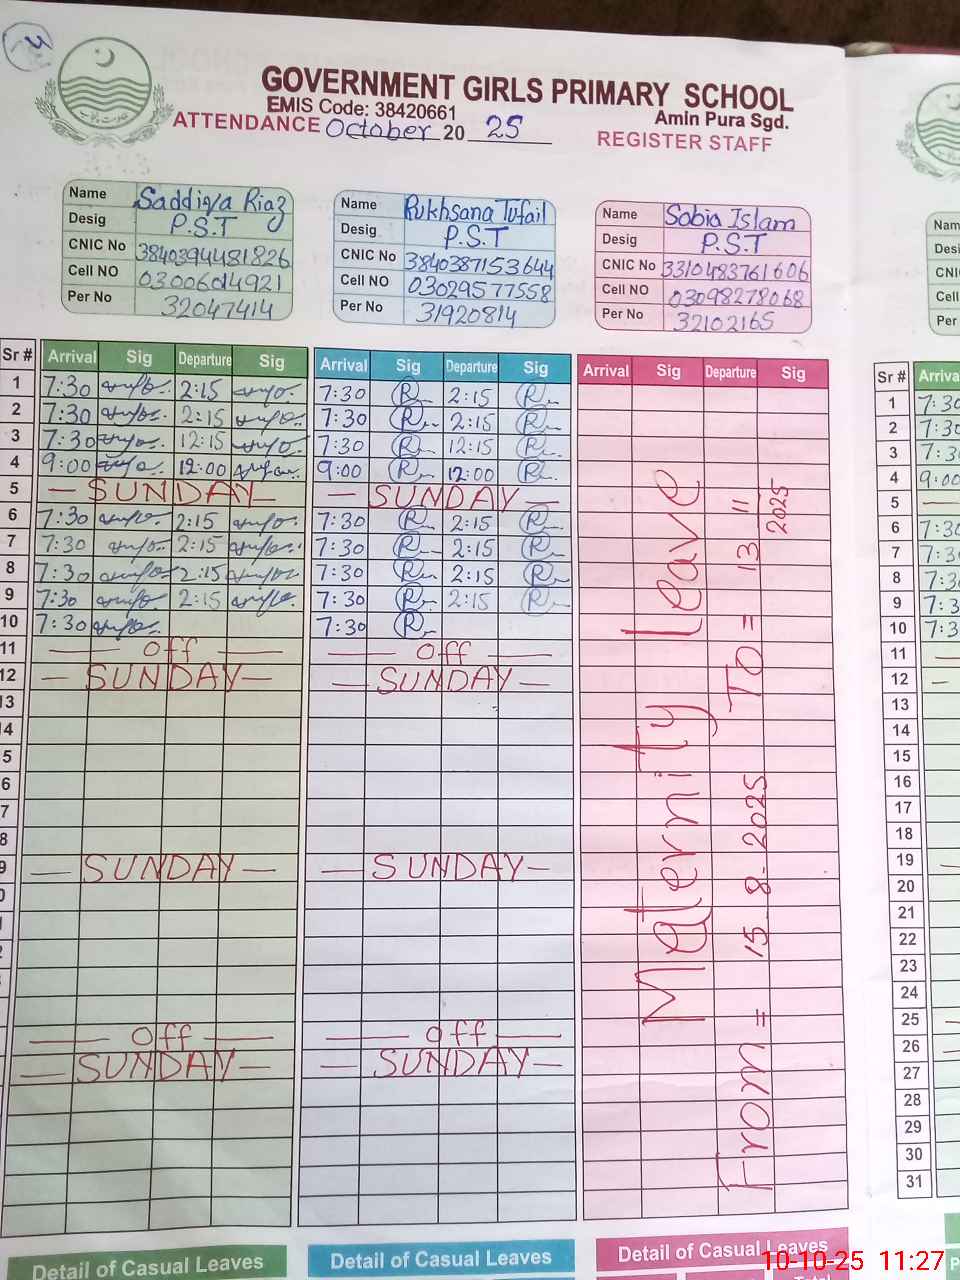 GOVERNMENT GIRLS PRIMARY SCHOOL
EMIS Code: 38420661
Amin Pura Sgd.
ATTENDANCE October 20 25
REGISTER STAFF
Name Saddiqa Riaz
Desig P.S.T
CNIC No 3840394481826
Cell NO 03006014921
Per No 32047414
Name Rukhsana Tufail
Desig P.S.T
CNIC No 3840387153644
Cell NO 03029577558
Per No 31920814
Name Sobia Islam
Desig P.S.T
CNIC No 3310483761606
Cell NO 03098278068
Per No 32102165
Sr # Arrival Sig Departure Sig Arrival Sig Departure Sig Arrival Sig Departure Sig Sr # Arriva
1 7:30 2:15 7:30 R 2:15 R 1 7:30
2 7:30 2:15 7:30 R 2:15 R 2 7:30
3 7:30 12:15 7:30 R 12:15 R 3 7:3
4 9:00 12:00 9:00 R 12:00 R 4 9:00
5 SUNDAY SUNDAY 5
6 7:30 2:15 7:30 R 2:15 R 6 7:30
7 7:30 2:15 7:30 R 2:15 R 7 7:3
8 7:30 2:15 7:30 R 2:15 R 8 7:3
9 7:30 2:15 7:30 R 2:15 R 9 7:3
10 7:30 7:30 R 10 7:3
11 Off Off 11
12 SUNDAY SUNDAY 12
13 13
14 14
5 15
6 16
7 17
8 18
9 SUNDAY SUNDAY 19
0 20
21
22
23
24
Off Off 25
SUNDAY SUNDAY 26
27
28
29
30
31
Maternity Leave
From = 15-8-2025 TO = 13 11 2025
Nam
Desi
CNI
Cell
Per
Detail of Casual Leaves
Detail of Casual Leaves
Detail of Casual Leaves
10-10-25 11:27